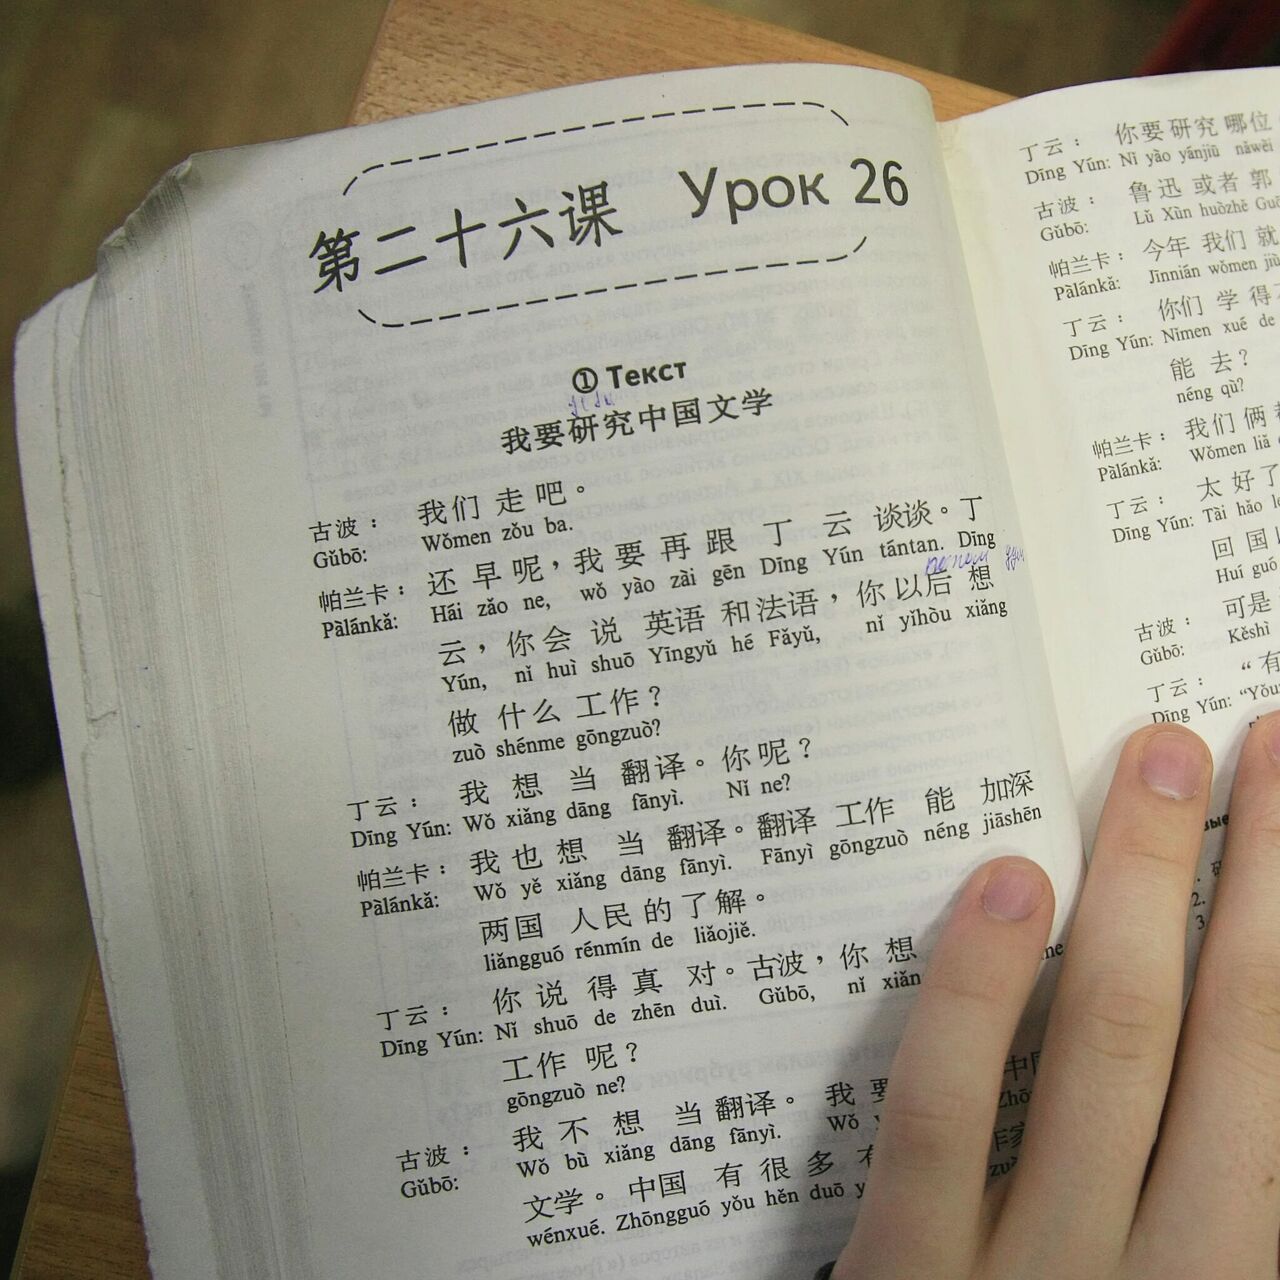 第二十六课 Урок 26
① Текст
我要研究中国文学
古波： 我们 走 吧。
Gǔbō: Wǒmen zǒu ba.
帕兰卡： 还 早 呢，我 要 再 跟 丁 云 谈谈。丁
Pàlánkǎ: Hái zǎo ne, wǒ yào zài gēn Dīng Yún tántan. Dīng
云，你 会 说 英语 和 法语，你 以后 想
Yún, nǐ huì shuō Yīngyǔ hé Fǎyǔ, nǐ yǐhòu xiǎng
做 什么 工作？
zuò shénme gōngzuò?
丁云： 我 想 当 翻译。你 呢？
Dīng Yún: Wǒ xiǎng dāng fānyì. Nǐ ne?
帕兰卡： 我 也 想 当 翻译。翻译 工作 能 加深
Pàlánkǎ: Wǒ yě xiǎng dāng fānyì. Fānyì gōngzuò néng jiāshēn
两国 人民 的 了解。
liǎngguó rénmín de liǎojiě.
丁云： 你 说 得 真 对。古波，你 想
Dīng Yún: Nǐ shuō de zhēn duì. Gǔbō, nǐ
工作 呢？
gōngzuò ne?
古波： 我 不 想 当 翻译。我 要
Gǔbō: Wǒ bù xiǎng dāng fānyì. Wǒ
文学。中国 有 很 多
wénxué. Zhōngguó yǒu hěn duō
丁云： 你 要 研究 哪 位
Dīng Yún: Nǐ yào yánjiū nǎwèi
古波： 鲁迅 或者 郭
Gǔbō: Lǔ Xùn huòzhě
帕兰卡： 今年 我们 就
Pàlánkǎ: Jīnnián wǒmen
丁云： 你们 学 得
Dīng Yún: Nǐmen xué de
能 去？
néng qù?
帕兰卡： 我们 俩
Pàlánkǎ: Wǒmen liǎ
丁云： 太 好 了
Dīng Yún: Tài hǎo
回 国
Huí guó
古波： 可是
Gǔbō: Kěshì
丁云： “有
Dīng Yún: